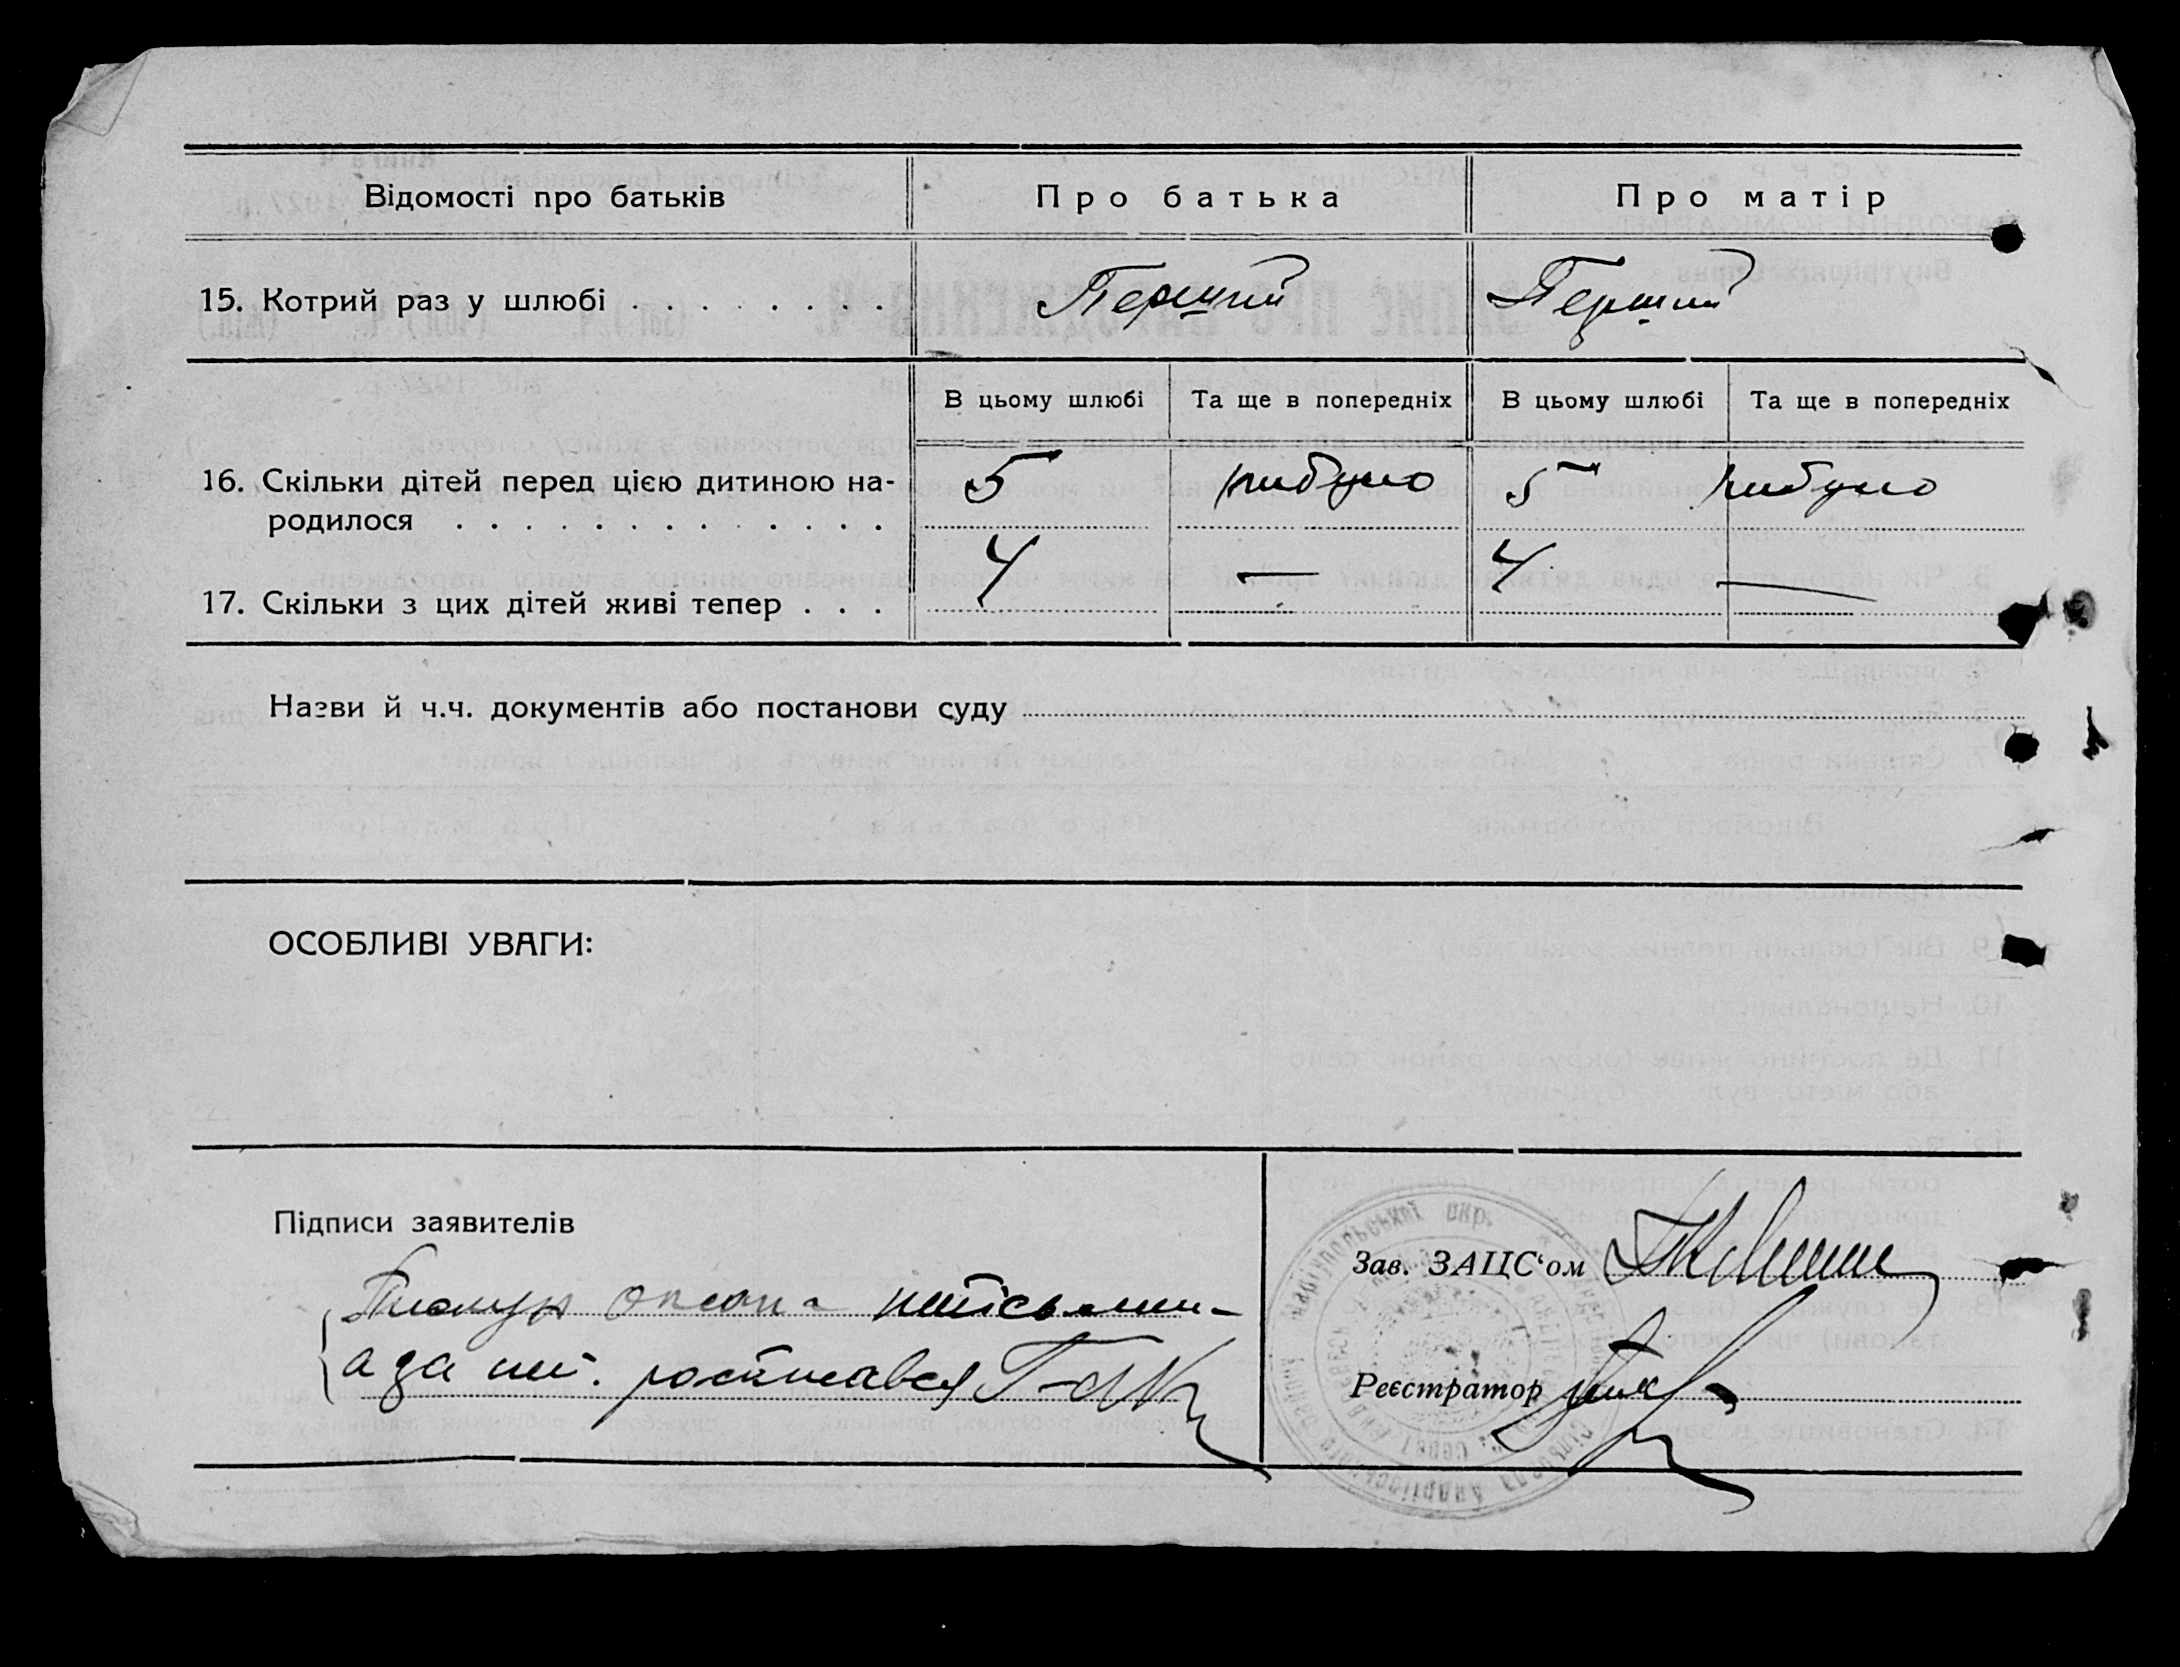 Відомості про батьків Про батька Про матір
15. Котрий раз у шлюбі . . . . . . . . Перший Перший
В цьому шлюбі Та ще в попередніх В цьому шлюбі Та ще в попередніх
16. Скільки дітей перед цією дитиною на- 5 нибуло 5 нибуло
родилося . . . . . . . . . . . . .
17. Скільки з цих дітей живі тепер . . . 4 — 4 —
Назви й ч.ч. документів або постанови суду
ОСОБЛИВІ УВАГИ:
Підписи заявителів
Зав. ЗАЦС‘ом
а за
Реєстратор
Маріупольської окр.